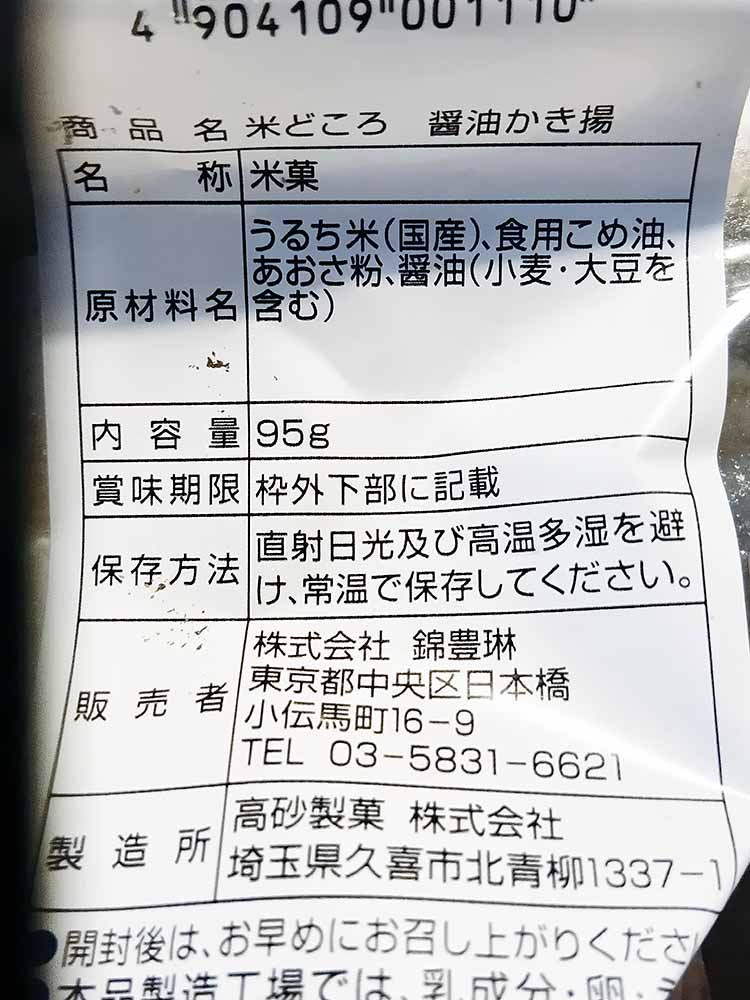 4 904109 001110
商品名 米どころ 醤油かき揚
名称 米菓
原材料名 うるち米(国産)、食用こめ油、
あおさ粉、醤油(小麦・大豆を
含む)
内容量 95g
賞味期限 枠外下部に記載
保存方法 直射日光及び高温多湿を避
け、常温で保存してください。
販売者 株式会社 錦豊琳
東京都中央区日本橋
小伝馬町16-9
TEL 03-5831-6621
製造所 高砂製菓 株式会社
埼玉県久喜市北青柳1337-1
●開封後は、お早めにお召し上がりくださ
本品製造工場では、乳成分・卵・